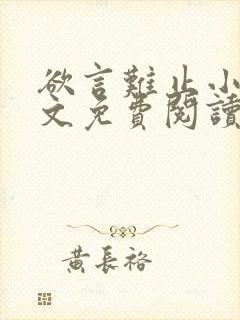 欲言難止小
文免費閱讀
黃長裕